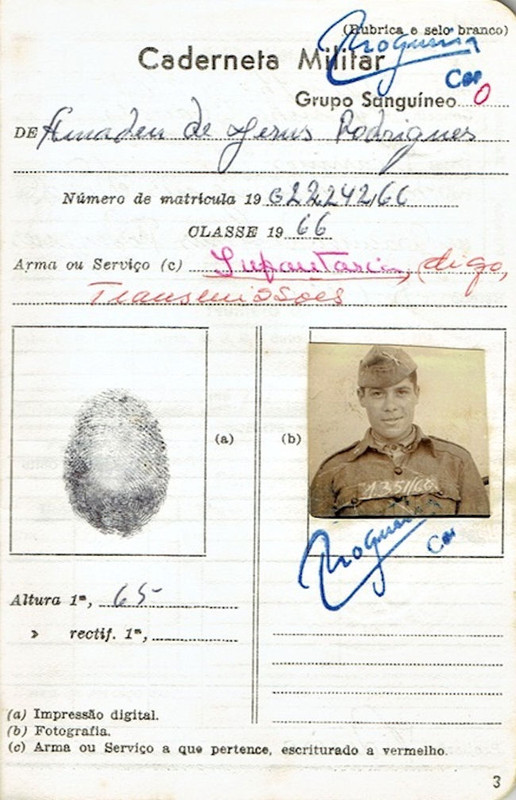 (Rubrica e selo branco)
Caderneta Militar
Grupo Sanguíneo O
DE Amadeu de Jesus Rodrigues
Número de matrícula 19 G 22242/66
CLASSE 19 66
Arma ou Serviço (c) Infantaria, digo,
Transmissões
(a)
(b)
1351/66
Altura 1ᵐ, 65
» rectif. 1ᵐ,
(a) Impressão digital.
(b) Fotografia.
(c) Arma ou Serviço a que pertence, escriturado a vermelho.
3